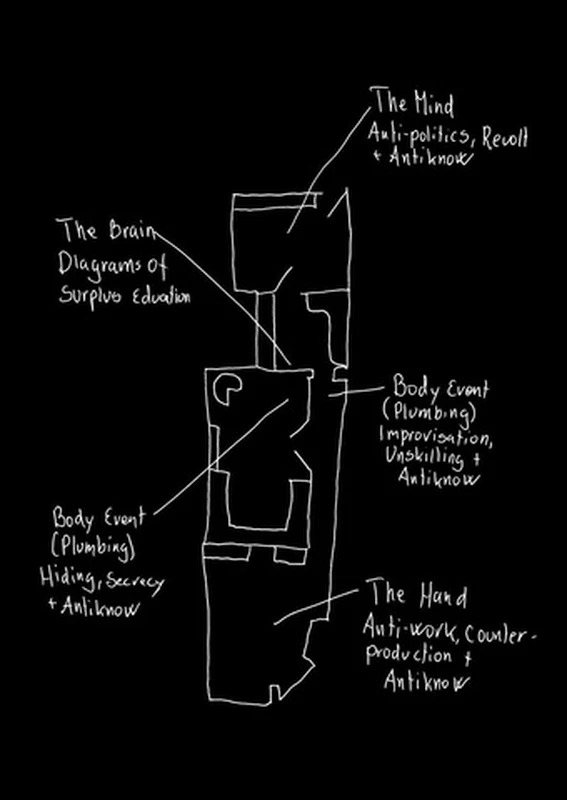 The Mind
Anti-politics, Revolt
+ Antiknow
The Brain
Diagrams of
Surplus Eduation
Body Event
(Plumbing)
Improvisation,
Unskilling +
Antiknow
Body Event
(Plumbing)
Hiding, Secrecy
+ Antiknow
The Hand
Anti-work, Counter-
production +
Antiknow